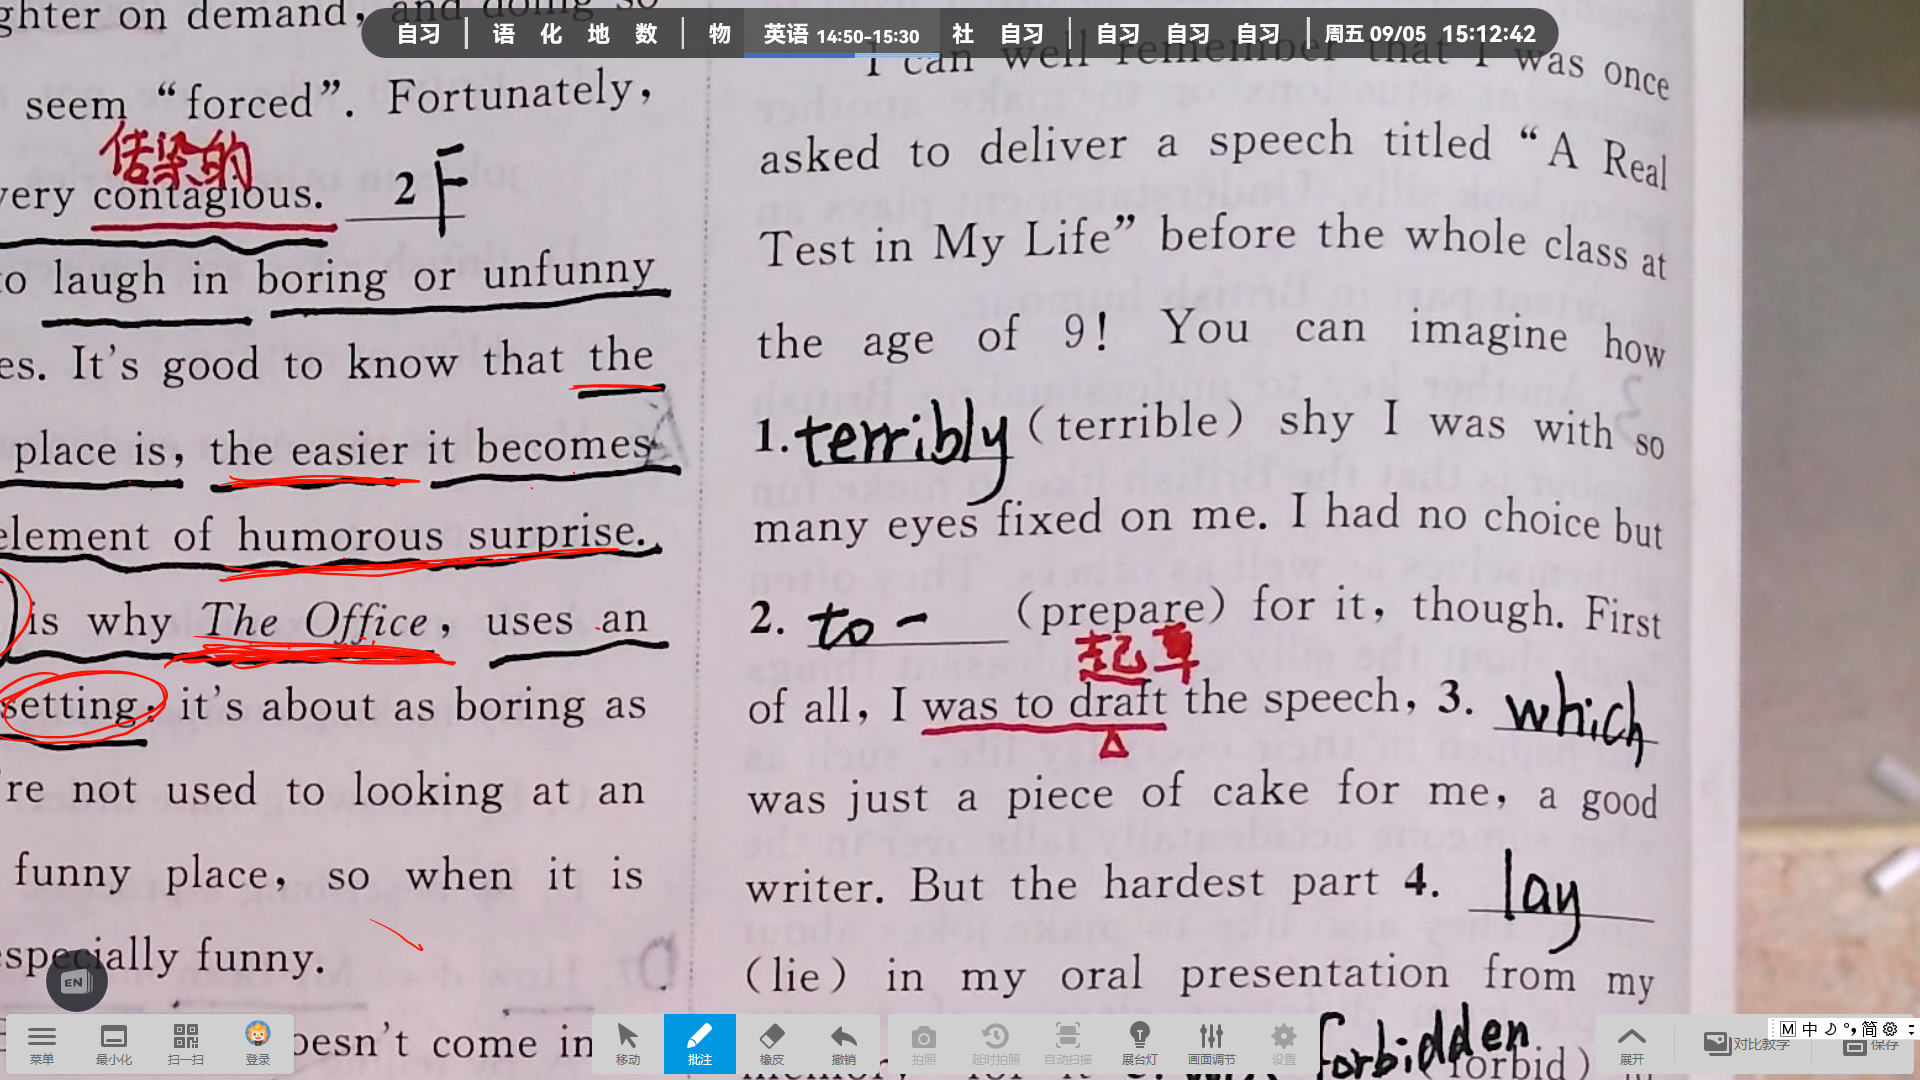 自习 | 语 化 地 数 | 物 英语 14:50-15:30 社 自习 | 自习 自习 自习 | 周五 09/05 15:12:42
ghter on demand, and doing so
seem “forced”. Fortunately,
传染的
very contagious. 2 F
to laugh in boring or unfunny
es. It's good to know that the
place is, the easier it becomes
element of humorous surprise.
is why The Office, uses an
setting; it's about as boring as
're not used to looking at an
funny place, so when it is
especially funny.
oesn't come in
I can well remember that I was once
asked to deliver a speech titled “A Real
Test in My Life” before the whole class at
the age of 9! You can imagine how
1. terribly (terrible) shy I was with so
many eyes fixed on me. I had no choice but
2. to - (prepare) for it, though. First
起草
of all, I was to draft the speech, 3. which
was just a piece of cake for me, a good
writer. But the hardest part 4. lay
(lie) in my oral presentation from my
forbidden
(forbid)
EN
菜单 最小化 扫一扫 登录 移动 批注 橡皮 撤销 拍照 延时拍照 自动扫描 展台灯 画面调节 设置 展开 对比教学 保存
M 中 简